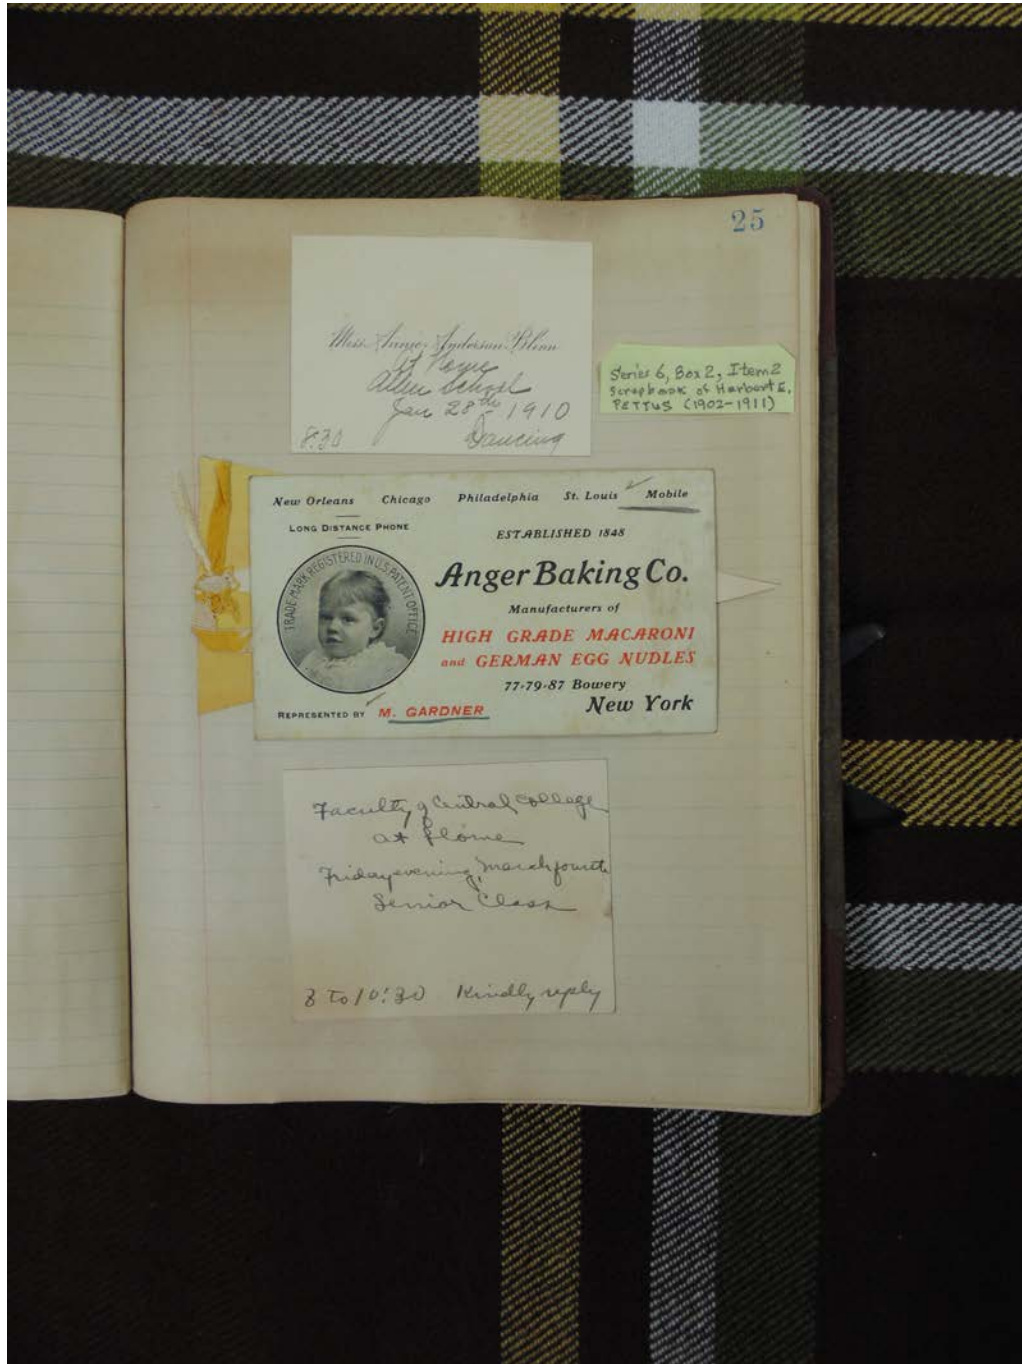 25
Miss Annie Anderson Blinn
At Home
Allen School
Jan 28th 1910
8:30 Dancing
Series 6, Box 2, Item 2
Scrapbook of Harbert E.
PETTUS (1902-1911)
New Orleans Chicago Philadelphia St. Louis Mobile
LONG DISTANCE PHONE
ESTABLISHED 1848
TRADE-MARK REGISTERED IN U.S. PATENT OFFICE
Anger Baking Co.
Manufacturers of
HIGH GRADE MACARONI
and GERMAN EGG NUDLES
77-79-87 Bowery
New York
REPRESENTED BY M. GARDNER
Faculty of Central College
at Home
Friday evening, March fourth
Senior Class
8 To 10:30 Kindly reply